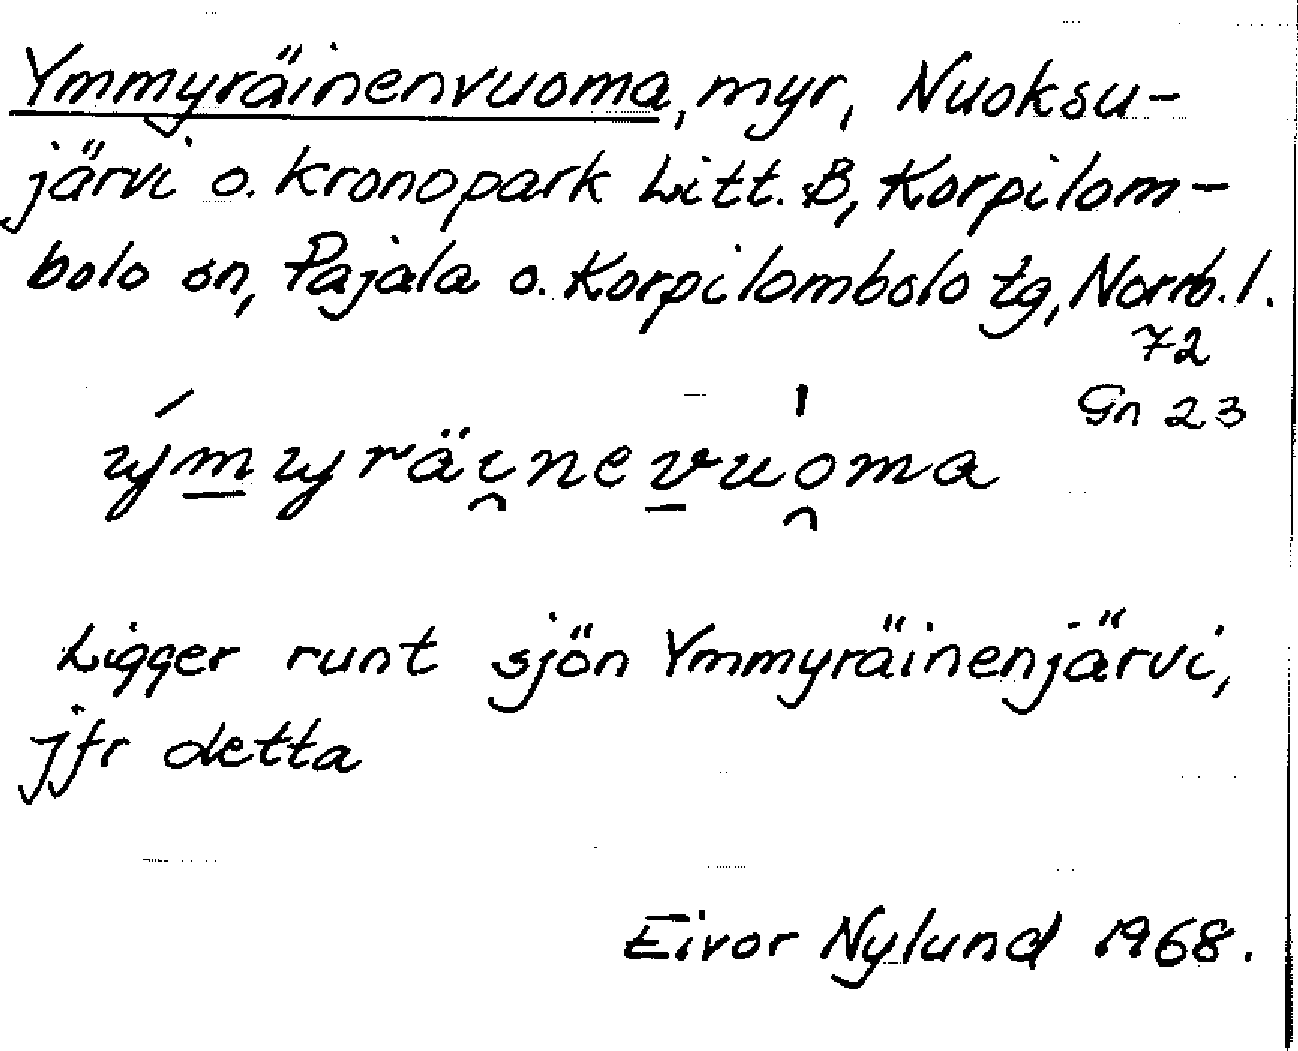 Ymmyräinenvuoma, myr, Nuoksu-
järvi o. kronopark Litt. B, Korpilom-
bolo sn, Pajala o. Korpilombolo tg, Norrb. l.
72
Gn 23
ým̲yräi̯nev̲uo̯ma
Ligger runt sjön Ymmyräinenjärvi,
jfr detta
Eivor Nylund 1968.